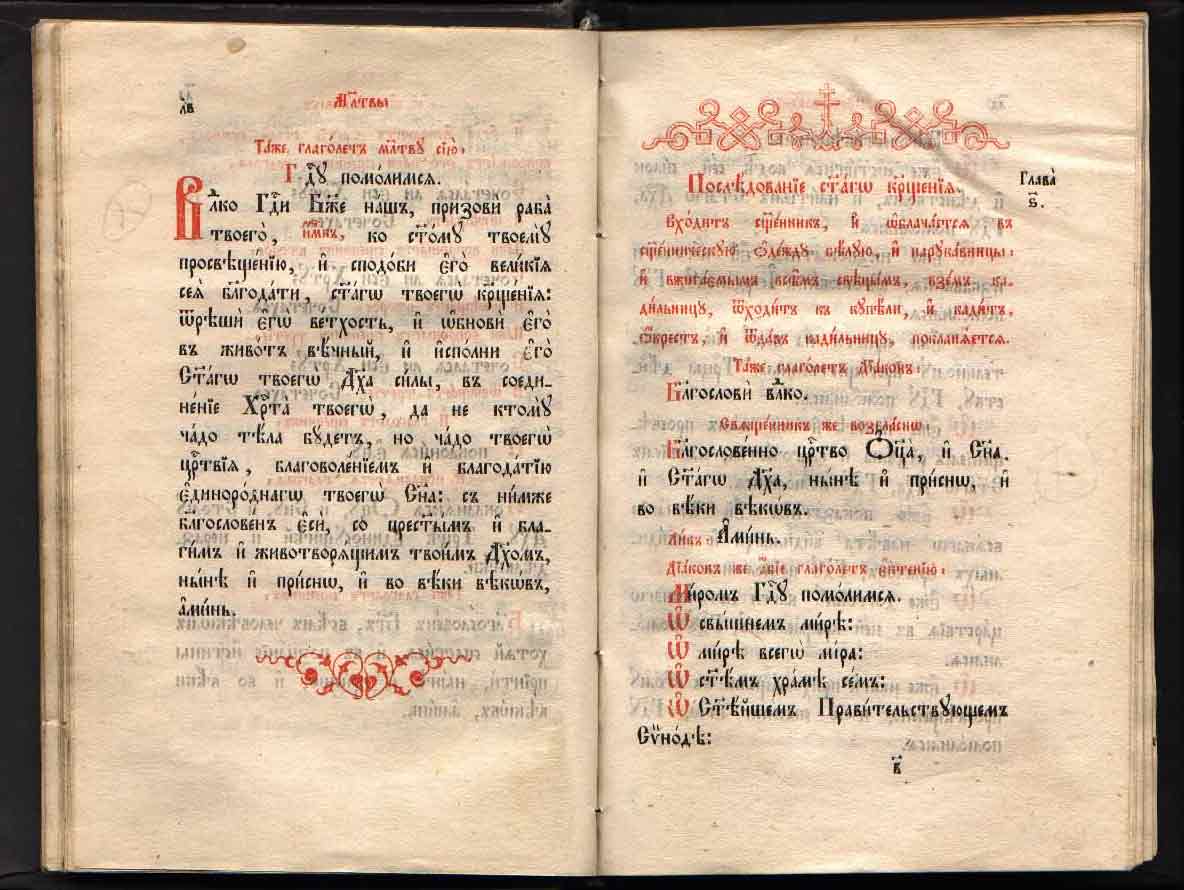 л҃в
Мл҃твы
Та́же, глаго́летъ мл҃тву сїю̀:
Гдⷭ҇у помолимся.
Влⷣко Гдⷭ҇и Бж҃е нашъ, призови раба̀
твоего̀, и҆́м҃къ, ко ст҃о́му твоемꙋ̀
просвѣще́нїю, и҆ сподо́би є҆го̀ вели́кїѧ
сеѧ̀ бл҃года́ти, ст҃а́гѡ твоегѡ̀ крⷳ҇ще́нїѧ:
ѿрѣшѝ є҆гѡ̀ ветхость, и҆ ѡ҆бновѝ є҆го̀
въ живо́тъ вѣ́чный, и҆ и҆спо́лни є҆го̀
Ст҃а́гѡ твоегѡ̀ Дх҃а си́лы, въ соеди-
не́нїе Хрⷭ҇та̀ твоегѡ̀, да не ктомꙋ̀
ча́до тѣ́ла бꙋ́детъ, но ча́до твоегѡ̀
црⷭ҇твїѧ, благоволе́нїемъ и҆ благода́тїю
є҆диноро́днагѡ твоегѡ̀ Сн҃а: съ ни́мже
бл҃гослове́нъ є҆сѝ, со прест҃ы́мъ и҆ бла-
ги́мъ и҆ животворѧ́щимъ твои́мъ Дх҃омъ,
ны́нѣ и҆ при́снѡ, и҆ во вѣ́ки вѣкѡ́въ,
а҆ми́нь.
Глава̀
ѕ҃.
Послѣ́дованїе ст҃а́гѡ крⷳ҇ще́нїѧ.
Вхо́дитъ сщ҃е́нникъ, и҆ ѡ҆блача́етсѧ въ
сщ҃е́нническꙋю ѻ҆де́ждꙋ бѣ́лꙋю, и҆ нарꙋка́вницы:
и҆ вжига́ємымъ всѣ̑мъ свѣща́мъ, взе́мъ ка-
ди́льницꙋ, ѿхо́дитъ къ кꙋпѣ́ли, и҆ кади́тъ,
ѻ҆́крестъ, и҆ ѿда́въ кади́льницꙋ, покланѧ́етсѧ.
Та́же глаго́летъ дїа́конъ:
Бл҃гословѝ влⷣко.
Свѧще́нникъ же возгла́снѡ:
Бл҃гослове́нно црⷭ҇тво Ѻ҆ц҃а̀, и҆ Сн҃а.
и҆ Ст҃а́гѡ Дх҃а, ны́нѣ и҆ при́снѡ, и҆
во вѣ́ки вѣкѡ́въ.
Ли́къ: А҆ми́нь.
Дїа́конъ же а҆́бїе глаго́летъ є҆ктенїю̀:
Ми́ромъ Гдⷭ҇ꙋ помо́лимсѧ.
Ѡ҆ свы́шнемъ ми́рѣ:
Ѡ҆ ми́рѣ всегѡ̀ мі́ра:
Ѡ҆ ст҃ѣ́мъ хра́мѣ се́мъ:
Ѡ҆ Ст҃ѣ́йшемъ Прави́тельствꙋющемъ
Сѵ҆но́дѣ:
в҃